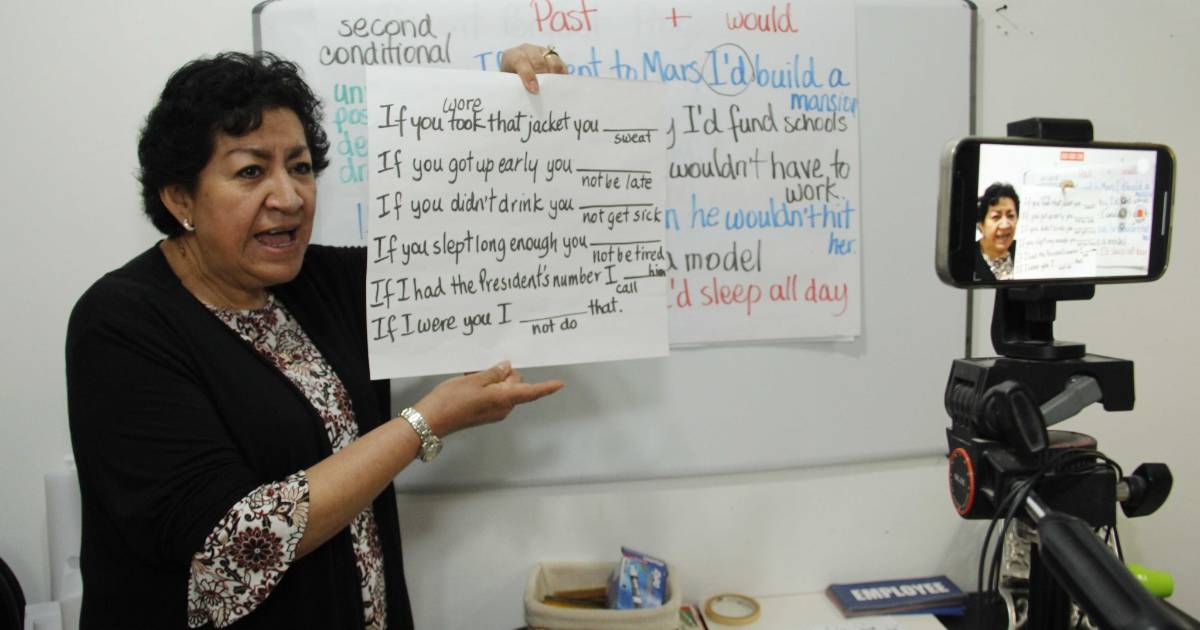 second
conditional
Past + would
to Mars I'd build a
mansion
I'd fund schools
wouldn't have to
work.
he wouldn't hit
her.
a model
sleep all day
wore
If you took that jacket you ______
sweat
If you got up early you ______
not be late
If you didn't drink you ______
not get sick
If you slept long enough you ______
not be tired
If I had the President's number I ____ him
call
If I were you I ______ that.
not do
EMPLOYEE